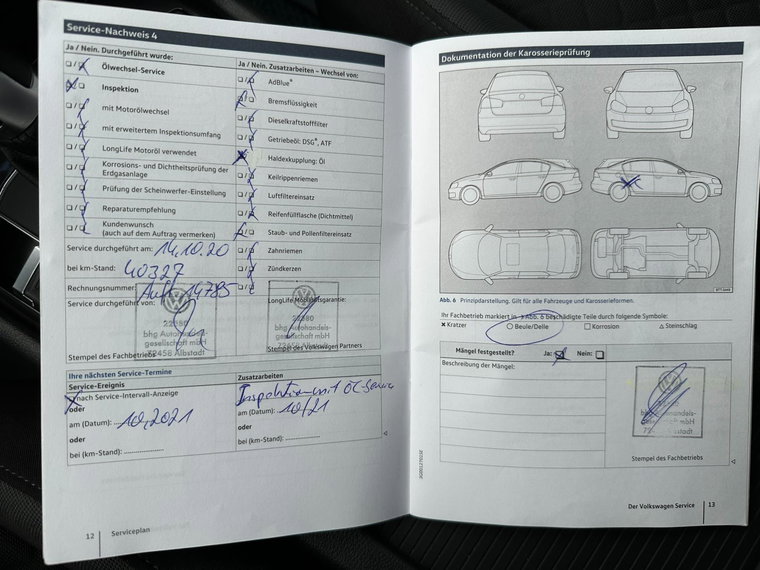 Service-Nachweis 4
Ja / Nein. Durchgeführt wurde:
Ölwechsel-Service
Inspektion
mit Motorölwechsel
mit erweitertem Inspektionsumfang
LongLife Motoröl verwendet
Korrosions- und Dichtheitsprüfung der
Erdgasanlage
Prüfung der Scheinwerfer-Einstellung
Reparaturempfehlung
Kundenwunsch
(auch auf dem Auftrag vermerken)
Ja / Nein. Zusatzarbeiten – Wechsel von:
AdBlue®
Bremsflüssigkeit
Dieselkraftstofffilter
Getriebeöl: DSG®, ATF
Haldexkupplung: Öl
Keilrippenriemen
Luftfiltereinsatz
Reifenfüllflasche (Dichtmittel)
Staub- und Pollenfiltereinsatz
Zahnriemen
Zündkerzen
Service durchgeführt am: 14.10.20
bei km-Stand: 40327
Rechnungsnummer: Auft. 14785
Service durchgeführt von:
bhg Autohandels-
gesellschaft mbH
72458 Albstadt
Stempel des Fachbetriebs
LongLife Mobilitätsgarantie:
bhg Autohandels-
gesellschaft mbH
Stempel des Volkswagen Partners
Ihre nächsten Service-Termine
Service-Ereignis
nach Service-Intervall-Anzeige
oder
am (Datum): 10.2021
oder
bei (km-Stand):
Zusatzarbeiten
Inspektion mit Öl-Service
am (Datum): 10/21
oder
bei (km-Stand):
12 Serviceplan
Dokumentation der Karosserieprüfung
Abb. 6 Prinzipdarstellung. Gilt für alle Fahrzeuge und Karosserieformen.
Ihr Fachbetrieb markiert in > Abb. 6 beschädigte Teile durch folgende Symbole:
× Kratzer ○ Beule/Delle □ Korrosion △ Steinschlag
Mängel festgestellt? Ja: Nein:
Beschreibung der Mängel:
bhg Autohandels-
gesellschaft mbH
Stempel des Fachbetriebs
Der Volkswagen Service 13